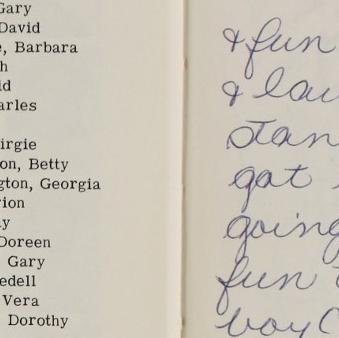 Gary
David
, Barbara
h
ld
arles
irgie
on, Betty
gton, Georgia
rion
y
Doreen
Gary
edell
Vera
Dorothy
& fun
& lau
stan
got
going
fun
boy